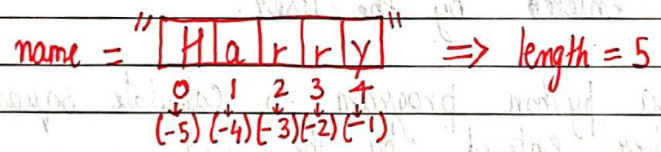 name = "Harry" => length = 5
0 1 2 3 4
(-5) (-4) (-3) (-2) (-1)